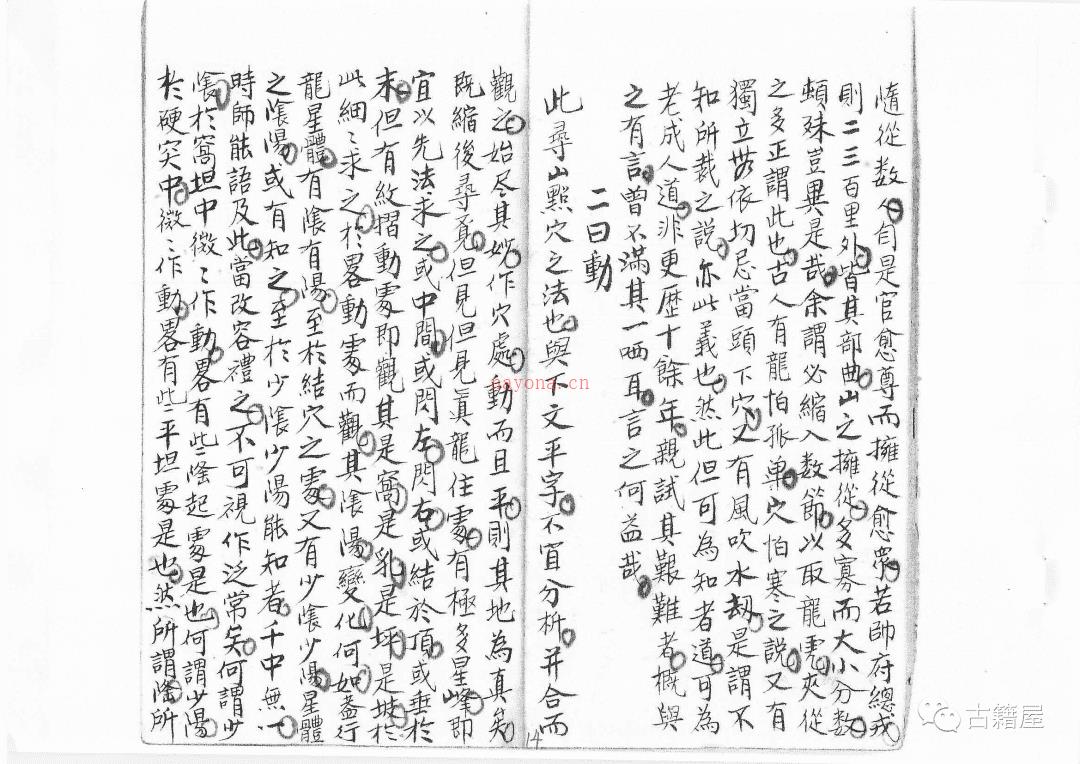 隨從数人自是官愈尊而擁從愈衆若帥府總戎
則二三百里外皆其部曲山之擁從多寡而大小分数
頓殊豈異是哉余謂必縮入数節以取龍虎夾從
之多正謂此也古人有龍怕孤單穴怕寒之說又有
獨立無依切忌當頭下穴又有風吹水刼是謂不
知所裁之說亦此義也然此但可為知者道可為
老成人道非更歷十餘年親試其艱難者概與
之有言曾不滿其一哂耳言之何益哉
二曰動
此尋山點穴之法也與下文平字不宜分析并合而
觀之始尽其妙作穴處動而且平則其地為真矣
既縮後尋覓但見但見真龍住處有極多星峰即
宜以先法求之或中間或閃左閃右或結於頂或垂於
末但有紋摺動處即觀其是窩是乳是坪是坡於
此細〻求之於畧動處而觀其陰陽變化何如蓋行
龍星體有陰有陽至於結穴之處又有少陰少陽星體
之陰陽或有知之至於少陰少陽能知者千中無一
時師能語及此當改容禮之不可視作泛常矣何謂少
陰於窩坦中微〻作動畧有些隆起處是也何謂少陽
於硬突中微〻作動畧有些平坦處是也然所謂陰所
14
nayona.cn
古籍屋